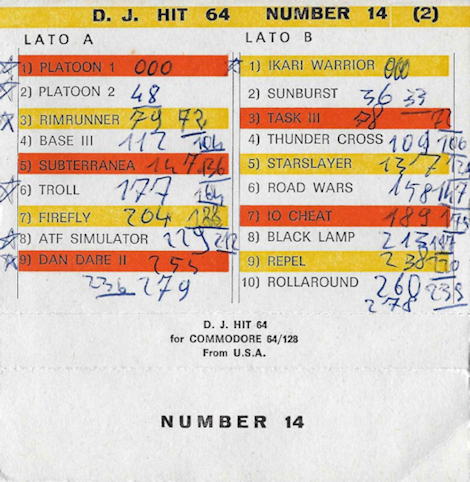 D. J. HIT 64 NUMBER 14 (2)
LATO A
1) PLATOON 1 000
2) PLATOON 2 48
3) RIMRUNNER 79 72
4) BASE III 112 104
5) SUBTERRANEA 147 136
6) TROLL 177 164
7) FIREFLY 204 186
8) ATF SIMULATOR 229 212
9) DAN DARE II 255
236 279
LATO B
1) IKARI WARRIOR 000
2) SUNBURST 36 33
3) TASK III 78 72
4) THUNDER CROSS 109 106
5) STARSLAYER 137
6) ROAD WARS 158 147
7) IO CHEAT 189 175
8) BLACK LAMP 213 197
9) REPEL 238 220
10) ROLLAROUND 260 239
278
D. J. HIT 64
for COMMODORE 64/128
From U.S.A.
NUMBER 14